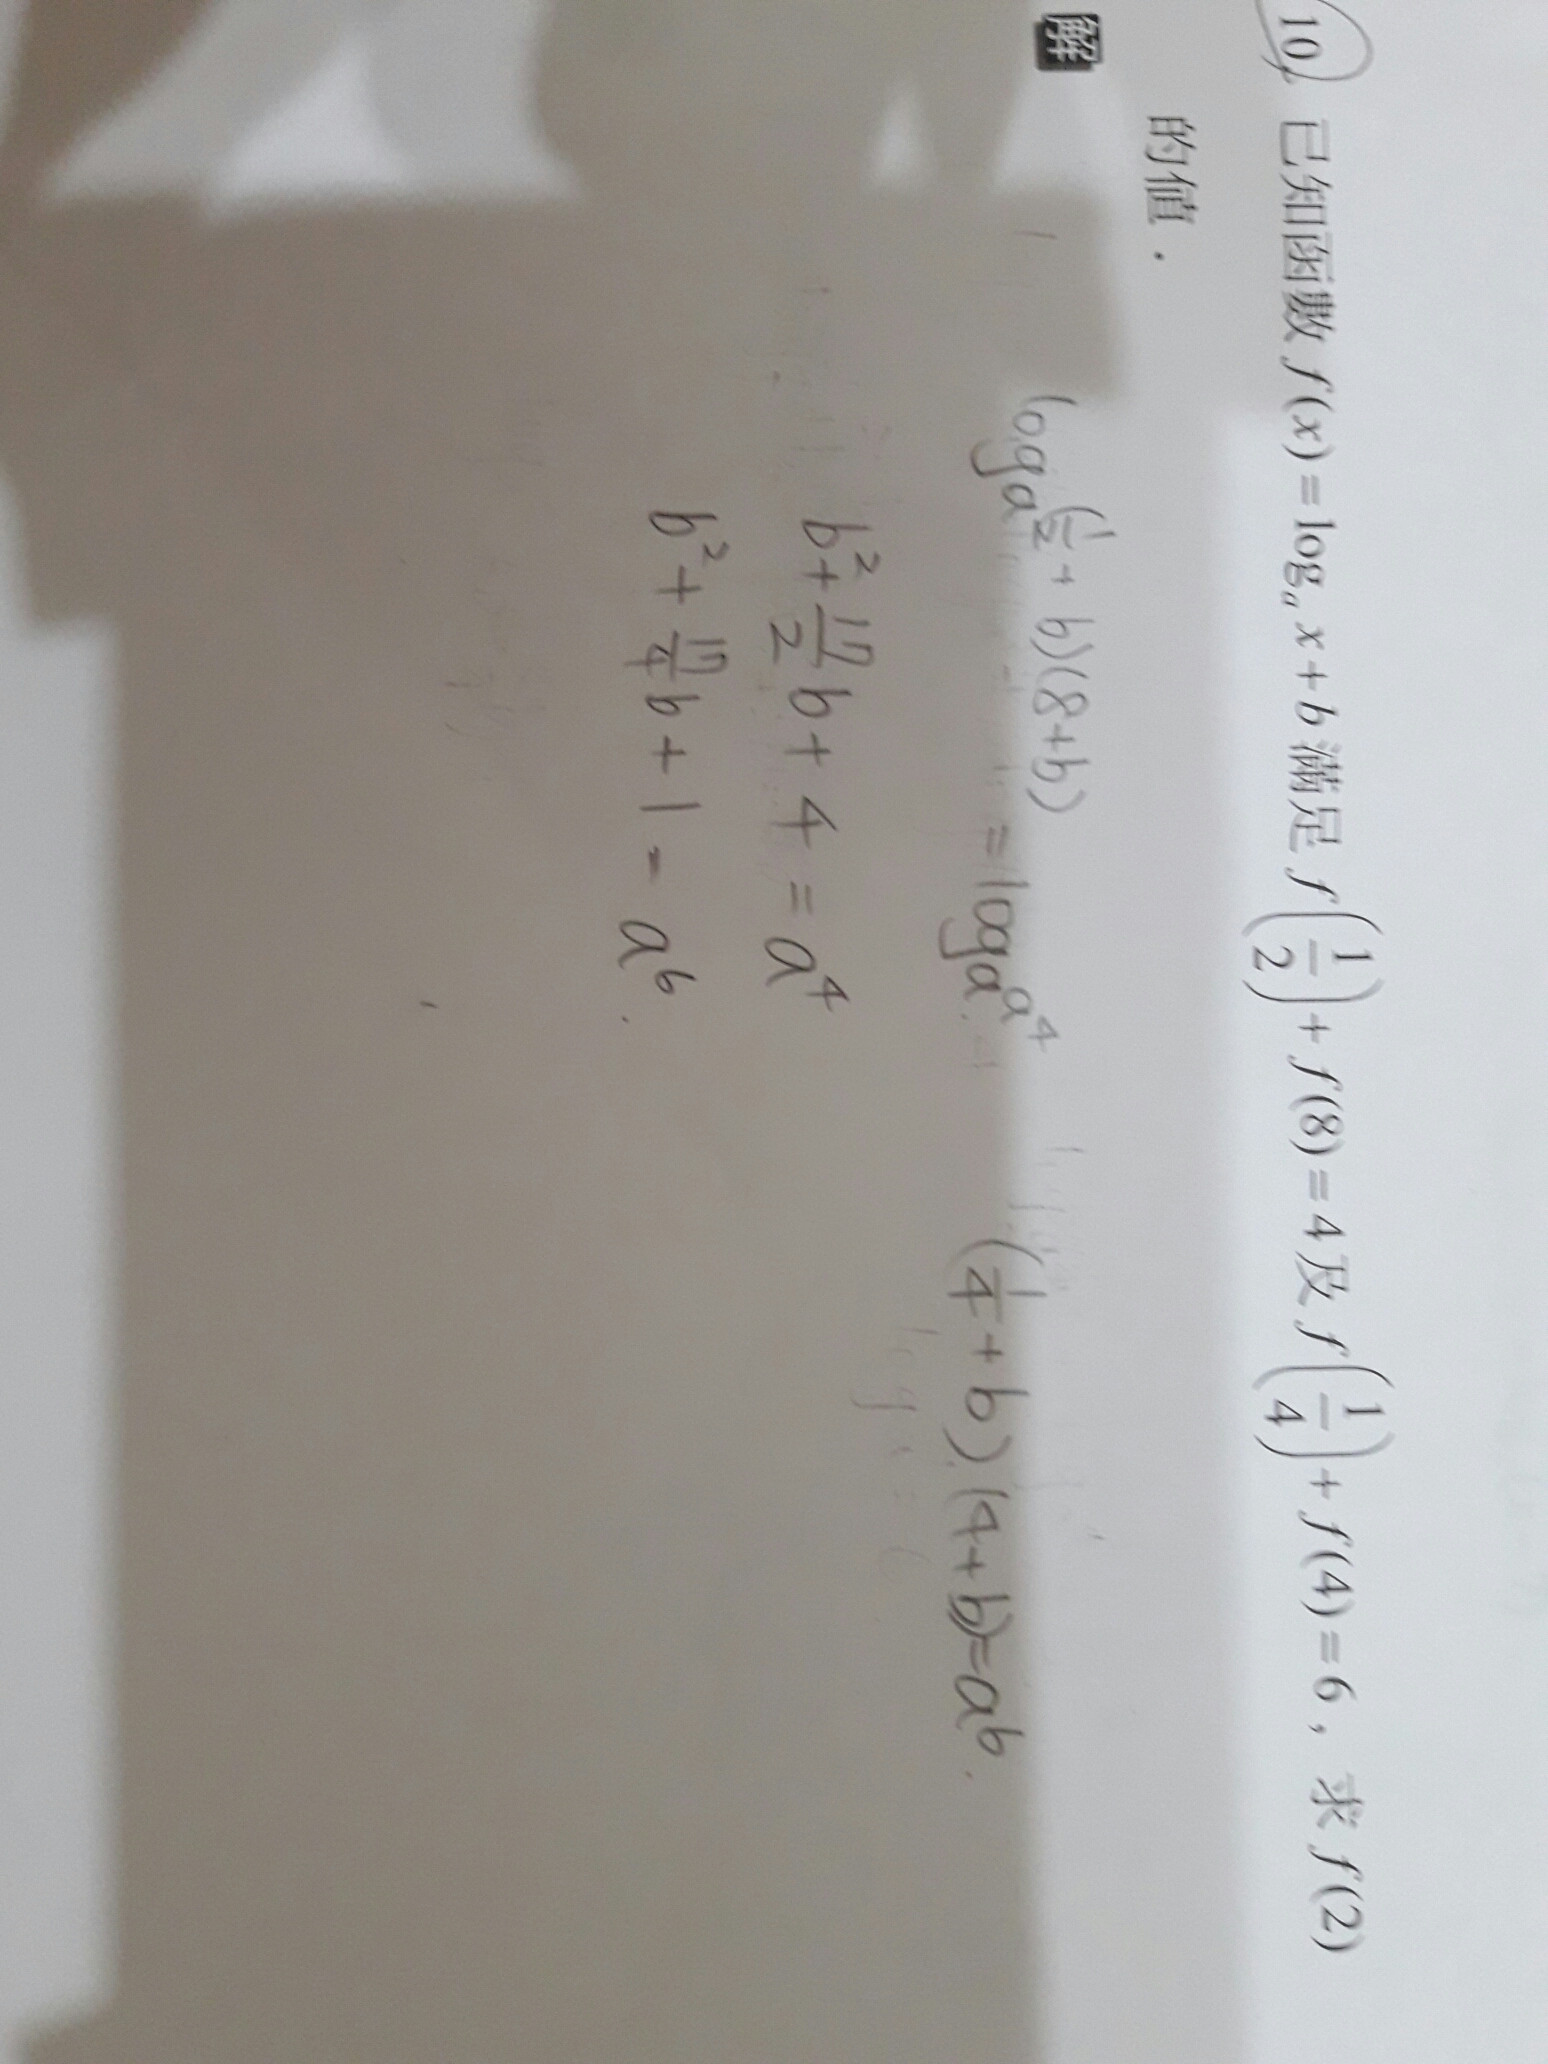 10. 已知函數 f(x) = logₐ x + b 滿足 f(1/2) + f(8) = 4 及 f(1/4) + f(4) = 6，求 f(2)
的值．
解
logₐ(1/2 + b)(8+b) = logₐ a⁴
(1/4 + b)(4+b) = a⁶.
b² + 17/2 b + 4 = a⁴
b² + 17/4 b + 1 = a⁶.